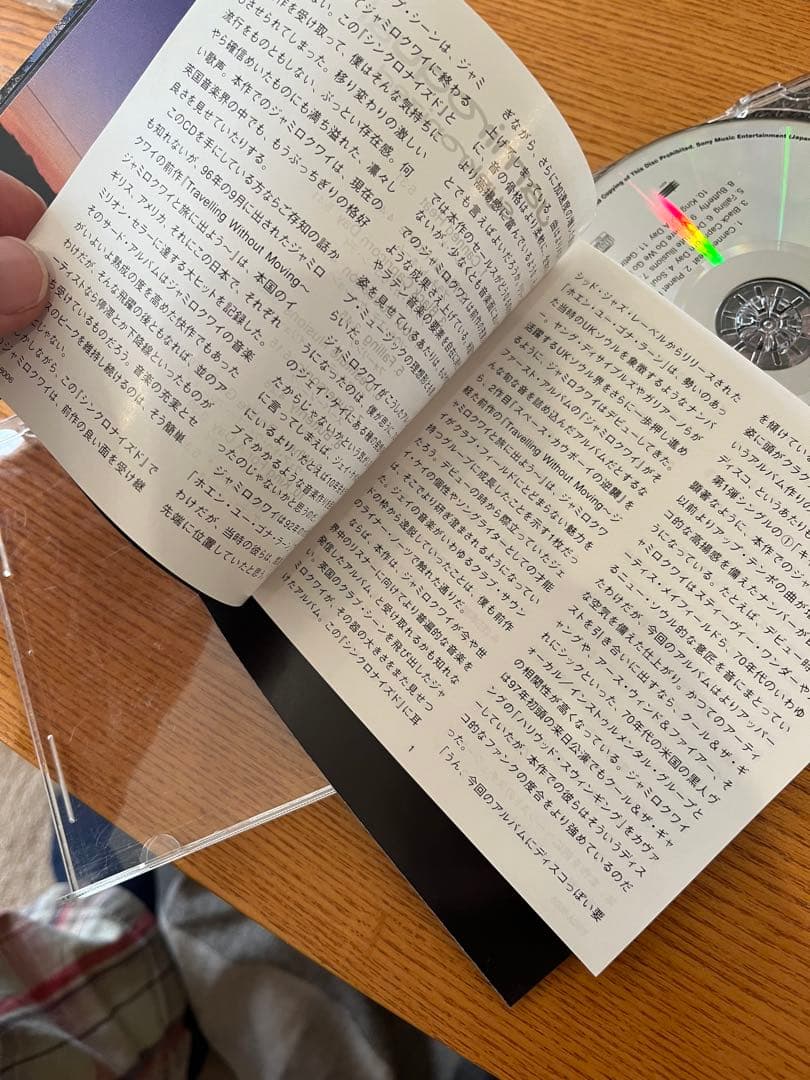 プ・シーンは、ジャミ
でジャミロクワイに終わる
作を受け取って、僕はそんな気持ちに
させられてしまった。移り変わりの激しい
流行をものともしない、ぶっとい存在感。何
やら確信めいたものにも満ち溢れた、凛々し
い歌声。本作でのジャミロクワイは、現在の
英国音楽界の中でも、もうぶっちぎりの格好
良さを見せていたりする。
このCDを手にしている方ならご存知の話か
も知れないが、96年の9月に出されたジャミロ
クワイの前作『Travelling Without Moving〜
ジャミロクワイと旅に出よう〜』は、本国のイ
ギリス、アメリカ、それにこの日本で、それぞれ
ミリオン・セラーに達する大ヒットを記録した。
そのサード・アルバムはジャミロクワイの音楽
がいよいよ熟成の度を高めた快作でもあった
わけだが、そんな飛躍の後ともなれば、並のアー
ティストなら停滞とか下降線といったものが
ち受けているものだろう。音楽の充実とセ
スのピークを維持し続けるのは、そう簡単
じゃない。
かしながら、この『シンクロナイズド』で
ミロクワイは、前作の良い面を受け継
ぎながら、さらに加速度の
上げてしまっている。曲
とても言えばよいだろう
では本作のセールスが
ないが、少なくとも音楽
でのジャミロクワイは前作の
ような成果さえ上げている。
やラテン音楽の要素を自在に
姿を見せているあたりは、
プ・ミュージックの理想形と
らいだ。
ジャミロクワイがこうした
うになったのは、僕が思うに
のジェイ・ケイにある種の
たからじゃないかという気が
に言ってしまえば、ジェイ・ケイ
にいるより、たとえば10年
ブでかかるような音楽作り
ったのじゃないかと思うの
ジャミロクワイは92年
「ホエン・ユー・ゴナ・ラーン」
わけだが、当時の彼らは、
先端に位置していたと思う
シッド・ジャズ・レーベルからリリースされた
「ホエン・ユー・ゴナ・ラーン」は、勢いのあっ
た当時のUKソウルを象徴するようなナンバ
ー。ヤング・ディサイプルズやガリアーノらが
活躍するUKソウル界をさらに一歩押し進め
るように、ジャミロクワイはデビューしてきた。
ファースト・アルバムの『ジャミロクワイ』がそ
んな旬な音を詰め込んだアルバムだとするな
ら、2作目『スペース・カウボーイの逆襲』を
経た前作の『Travelling Without Moving〜ジ
ャミロクワイと旅に出よう〜』は、ジャミロクワ
イがクラブ・フィールドにとどまらない魅力を
持つグループに成長したことを示す1枚だっ
たろう。デビューの時から際立っていたジェ
イ・ケイの個性やシンガー/ライターとしての才能
は、そこでより研ぎ澄まされるようになってい
た。ジェイの音楽がいわゆるクラブ・サウン
ドの枠から逸脱していったことは、僕も前作
のライナー・ノーツで触れた通りだ。
ならば、本作は、ジャミロクワイが今や世
界中のリスナーに向けてより普遍的な音楽を
発信したアルバム、と受け取れるかも知れな
い。英国のクラブ・シーンを飛び出したジャ
ミロクワイが、その器の大きさをまた見せつ
けたアルバム。この『シンクロナイズド』に耳
を傾けてい
姿に頭がクラク
いうアルバム作り
ディスコ、というあたり
第1弾シングルの①「キ
顕著なように、本作でのジャ
以前よりアップ・テンポの曲が増
コ的な高揚感を備えたナンバーが目
うになっている。たとえば、デビュー時
ャミロクワイはスティーヴィー・ワンダーや
ーティス・メイフィールドら、70年代のいわゆ
るニュー・ソウル的な意匠を音にまとってい
たわけだが、今回のアルバムはよりアッパー
な空気を備えた仕上がり。かつてのアーティ
ストを引き合いに出すなら、クール＆ザ・ギ
ャングや、アース・ウィンド＆ファイアー、そ
れにシックといった、70年代の米国の黒人ヴ
ォーカル／インストゥルメンタル・グループと
の相関性が高くなっている。ジャミロクワイ
は97年初頭の来日公演でもクール＆ザ・ギャ
ングの「ハリウッド・スウィンギング」をカヴァ
ーしていたが、本作での彼らはそういうディス
コ的なファンクの度合をより強めているのだ
った。
「うん、今回のアルバムにディスコっぽい要
1
Copying of This Disc Prohibited. Sony Music Entertainment (Japan